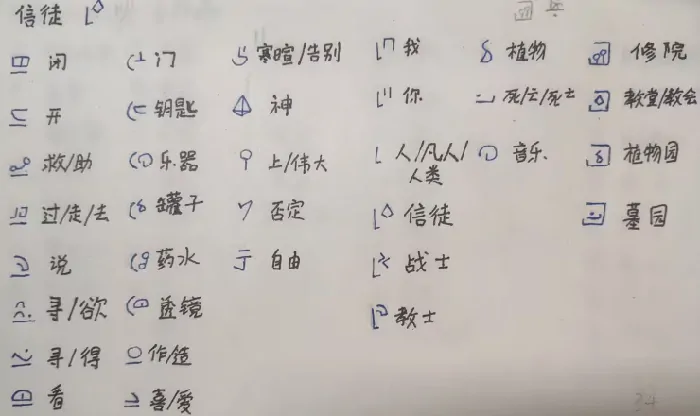 信徒
闭 门 寒暄/告别 我 植物 修院
开 钥匙 神 你 死/亡/死亡 教堂/教会
救/助 乐器 上/伟大 人/凡人/人类 音乐 植物园
过/走/去 罐子 否定 信徒 墓园
说 药水 自由 战士
寻/欲 透镜 教士
寻/得 作/造
看 喜/爱
24